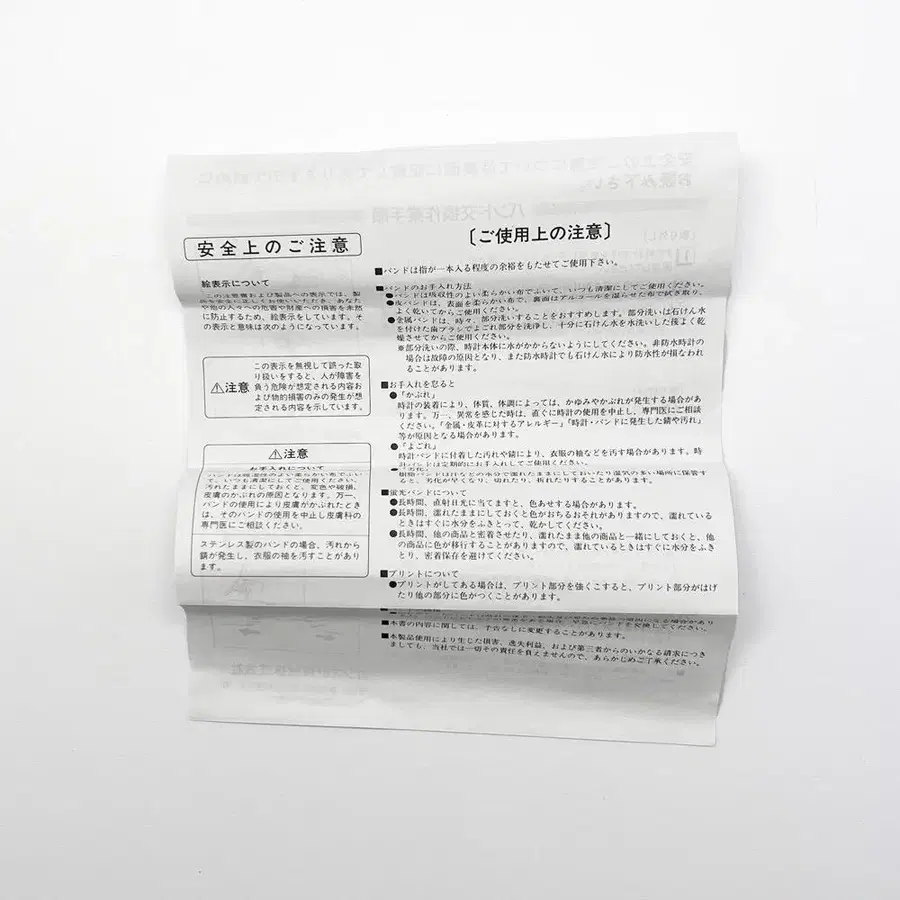 安全上のご注意
絵表示について
この注意書および製品への表示では、製
品を安全に正しくお使いいただき、あなた
や他の人々への危害や財産への損害を未然
に防止するため、絵表示をしています。そ
の表示と意味は次のようになっています。
⚠注意
この表示を無視して誤った取
り扱いをすると、人が障害を
負う危険が想定される内容お
よび物的損害のみの発生が想
定される内容を示しています。
⚠注意
お手入れについて
バンドは吸湿性のよい柔らかい布でふい
て、いつも清潔にしてご使用ください。
汚れたままにしておくと、変色や破損、
皮膚のかぶれの原因となります。万一、
バンドの使用により皮膚がかぶれたとき
は、そのバンドの使用を中止し皮膚科の
専門医にご相談ください。
ステンレス製のバンドの場合、汚れから
錆が発生し、衣服の袖を汚すことがあり
ます。
〔ご使用上の注意〕
■バンドは指が一本入る程度の余裕をもたせてご使用下さい。
■バンドのお手入れ方法
●バンドは吸収性のよい柔らかい布でふいて、いつも清潔にしてご使用ください。
●皮バンドは、表面を柔らかい布で、裏面はアルコールを湿らせた布で拭き取り、
よく乾いてからご使用ください。
●金属バンドは、時々、部分洗いすることをおすすめします。部分洗いは石けん水
を付けた歯ブラシでよごれ部分を洗浄し、十分に石けん水を水洗いした後よく乾
燥させてからご使用ください。
※部分洗いの際、時計本体に水がかからないようにしてください。非防水時計の
場合は故障の原因となり、また防水時計でも石けん水により防水性が損なわれ
ることがあります。
■お手入れを怠ると
●「かぶれ」
時計の装着により、体質、体調によっては、かゆみやかぶれが発生する場合があ
ります。万一、異常を感じた時は、直ぐに時計の使用を中止し、専門医にご相談
ください。「金属・皮革に対するアレルギー」「時計・バンドに発生した錆や汚れ」
等が原因となる場合があります。
●「よごれ」
時計バンドに付着した汚れや錆により、衣服の袖などを汚す場合があります。時
計バンドは定期的にお手入れしてご使用ください。
樹脂バンドは汗などの水分で濡れたままにしておいたり湿気の多い場所に保管す
ると、劣化が早くなり、切れたり、折れたりすることがあります。
■蛍光バンドについて
●長時間、直射日光に当てますと、色あせする場合があります。
●長時間、濡れたままにしておくと色がおちるおそれがありますので、濡れている
ときはすぐに水分をふきとって、乾かしてください。
●長時間、他の商品と密着させたり、濡れたまま他の商品と一緒にしておくと、他
の商品に色が移行することがありますので、濡れているときはすぐに水分をふき
とり、密着保存を避けてください。
■プリントについて
●プリントがしてある場合は、プリント部分を強くこすると、プリント部分がはげ
たり他の部分に色がつくことがあります。
■本書の内容に関しては、予告なしに変更することがあります。
■本製品使用により生じた損害、逸失利益、および第三者からのいかなる請求につき
ましても、当社では一切その責任を負えませんので、あらかじめご了承ください。